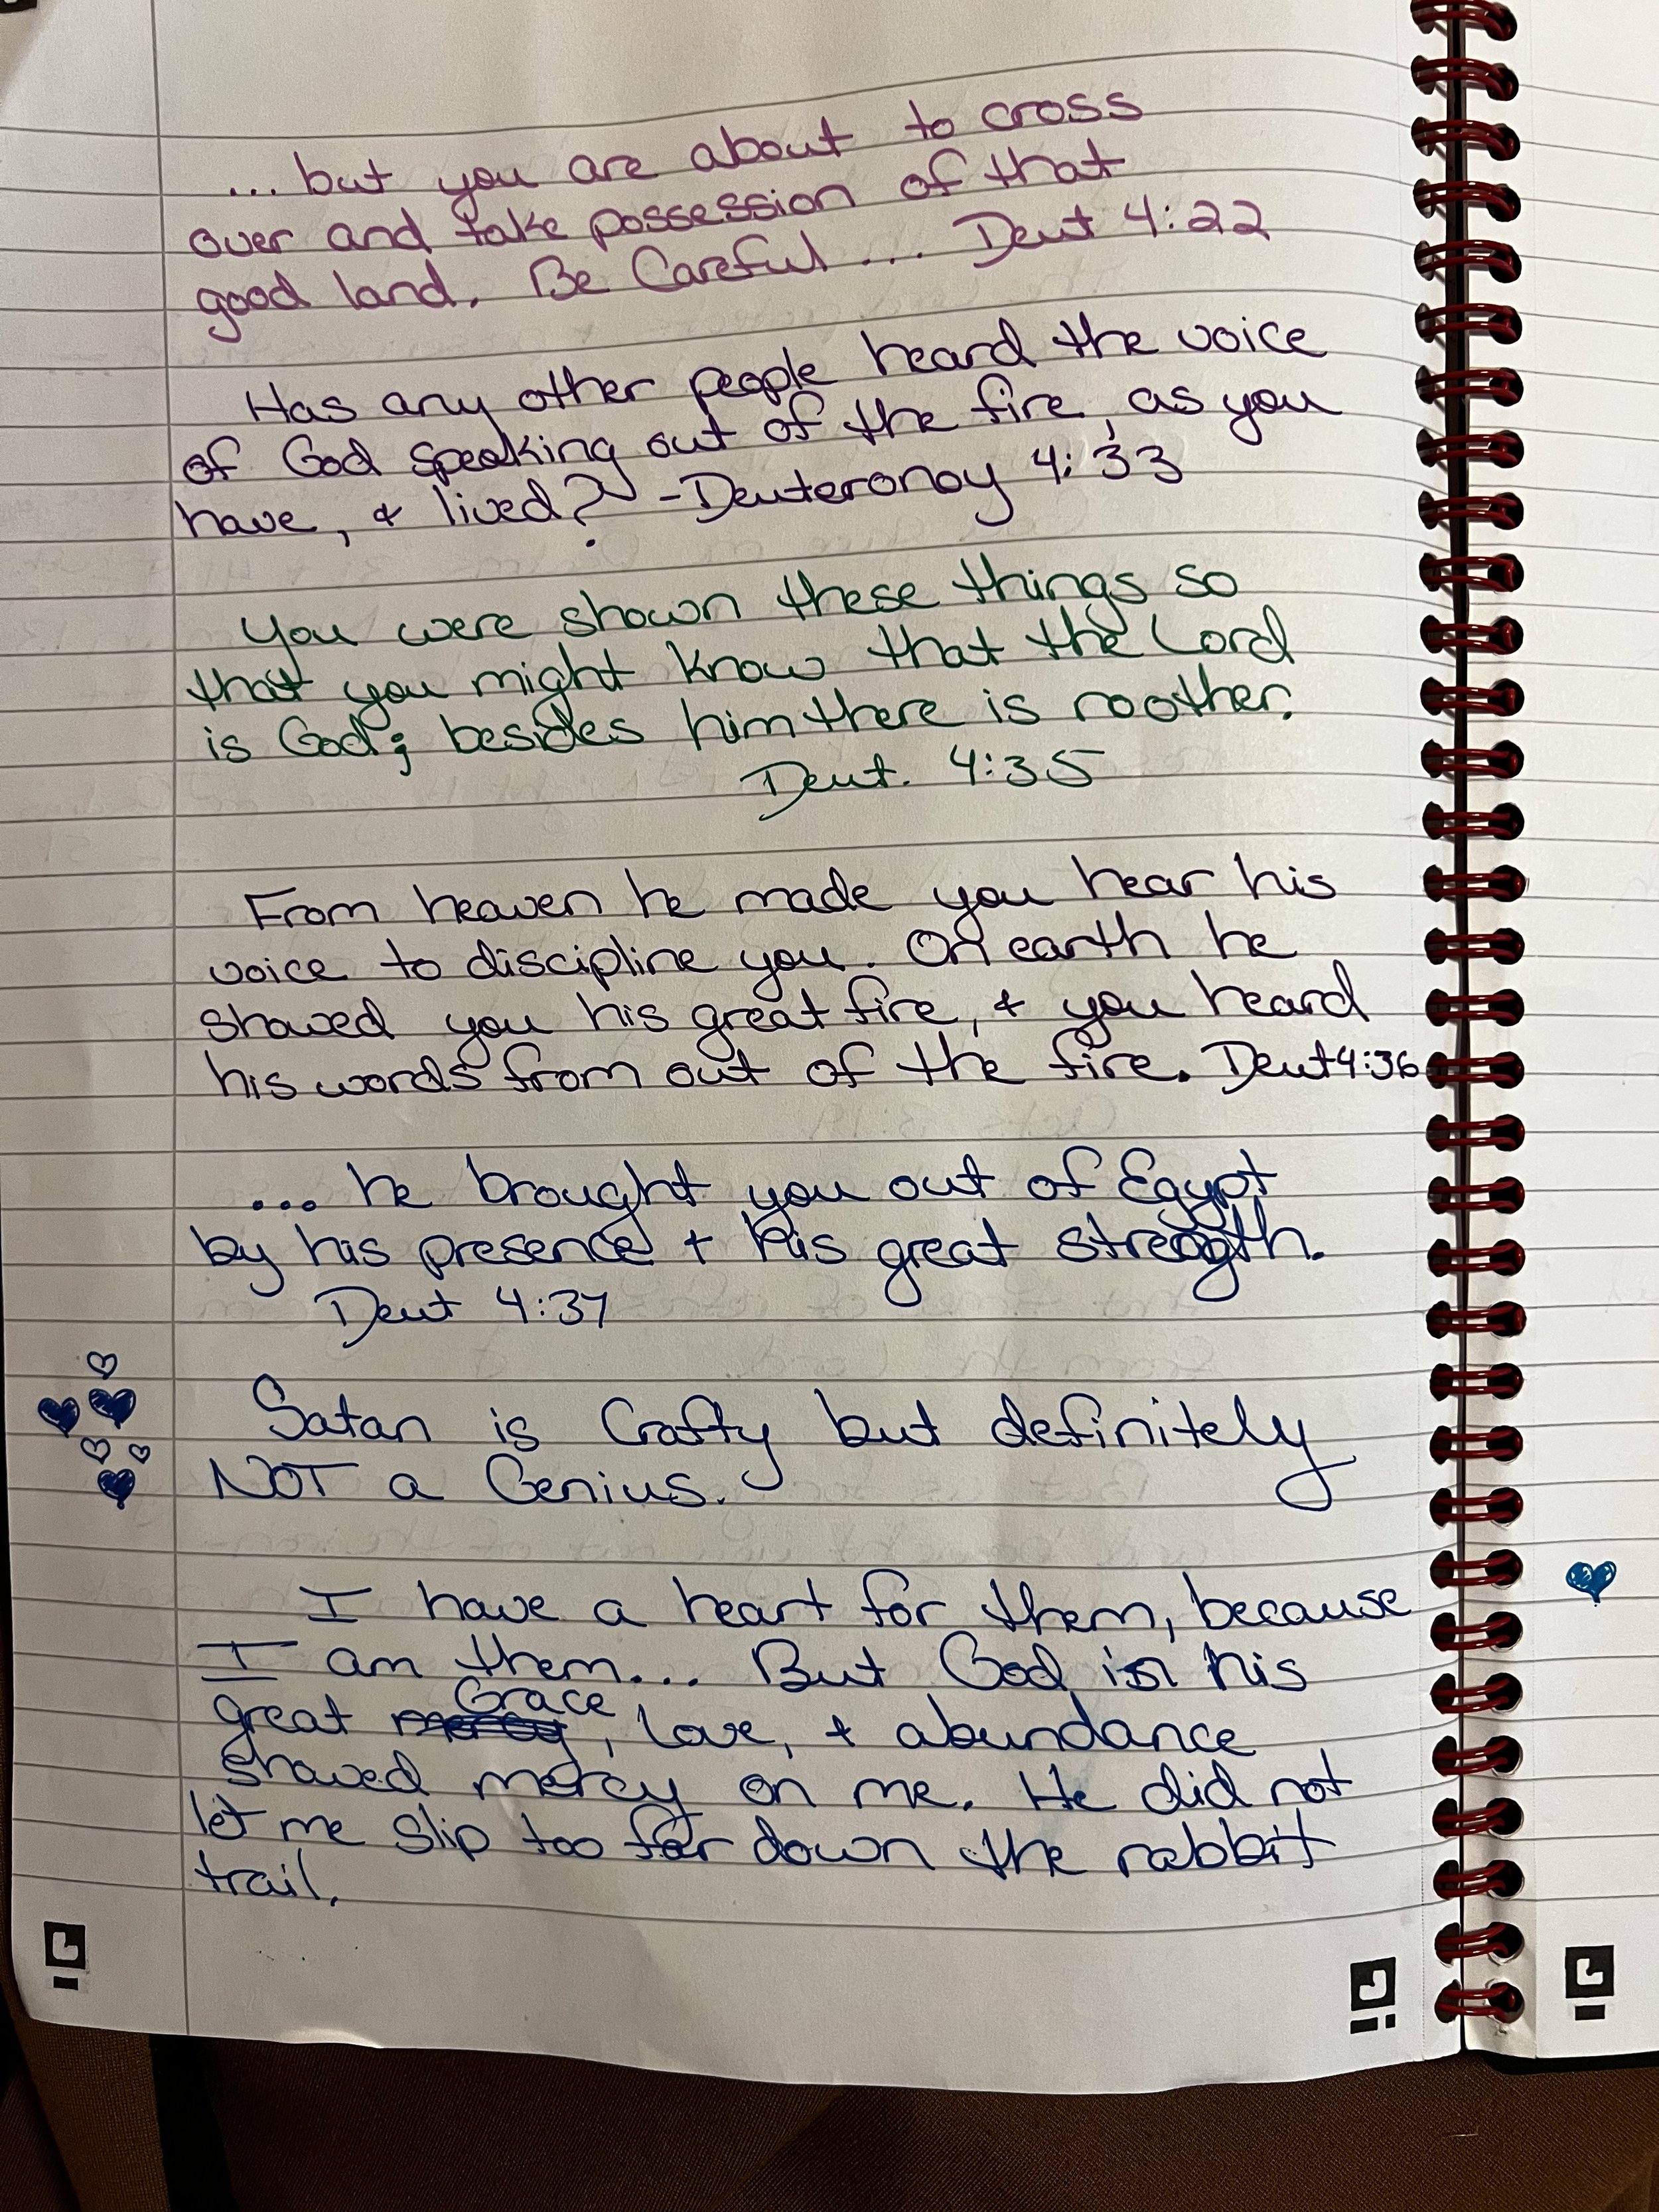 ... but you are about to cross
over and take possession of that
good land. Be Careful ... Deut 4:22
Has any other people heard the voice
of God speaking out of the fire, as you
have, & lived? - Deuteronoy 4:33
You were shown these things so
that you might know that the Lord
is God; besides him there is no other.
Deut. 4:35
From heaven he made you hear his
voice to discipline you. On earth he
showed you his great fire, & you heard
his words from out of the fire. Deut 4:36
... he brought you out of Egypt
by his presence + his great strength.
Deut 4:37
Satan is Crafty but definitely
NOT a Genius.
I have a heart for them, because
I am them... But God in his
Grace
great mercy, love, + abundance
showed mercy on me. He did not
let me slip too far down the rabbit
trail.